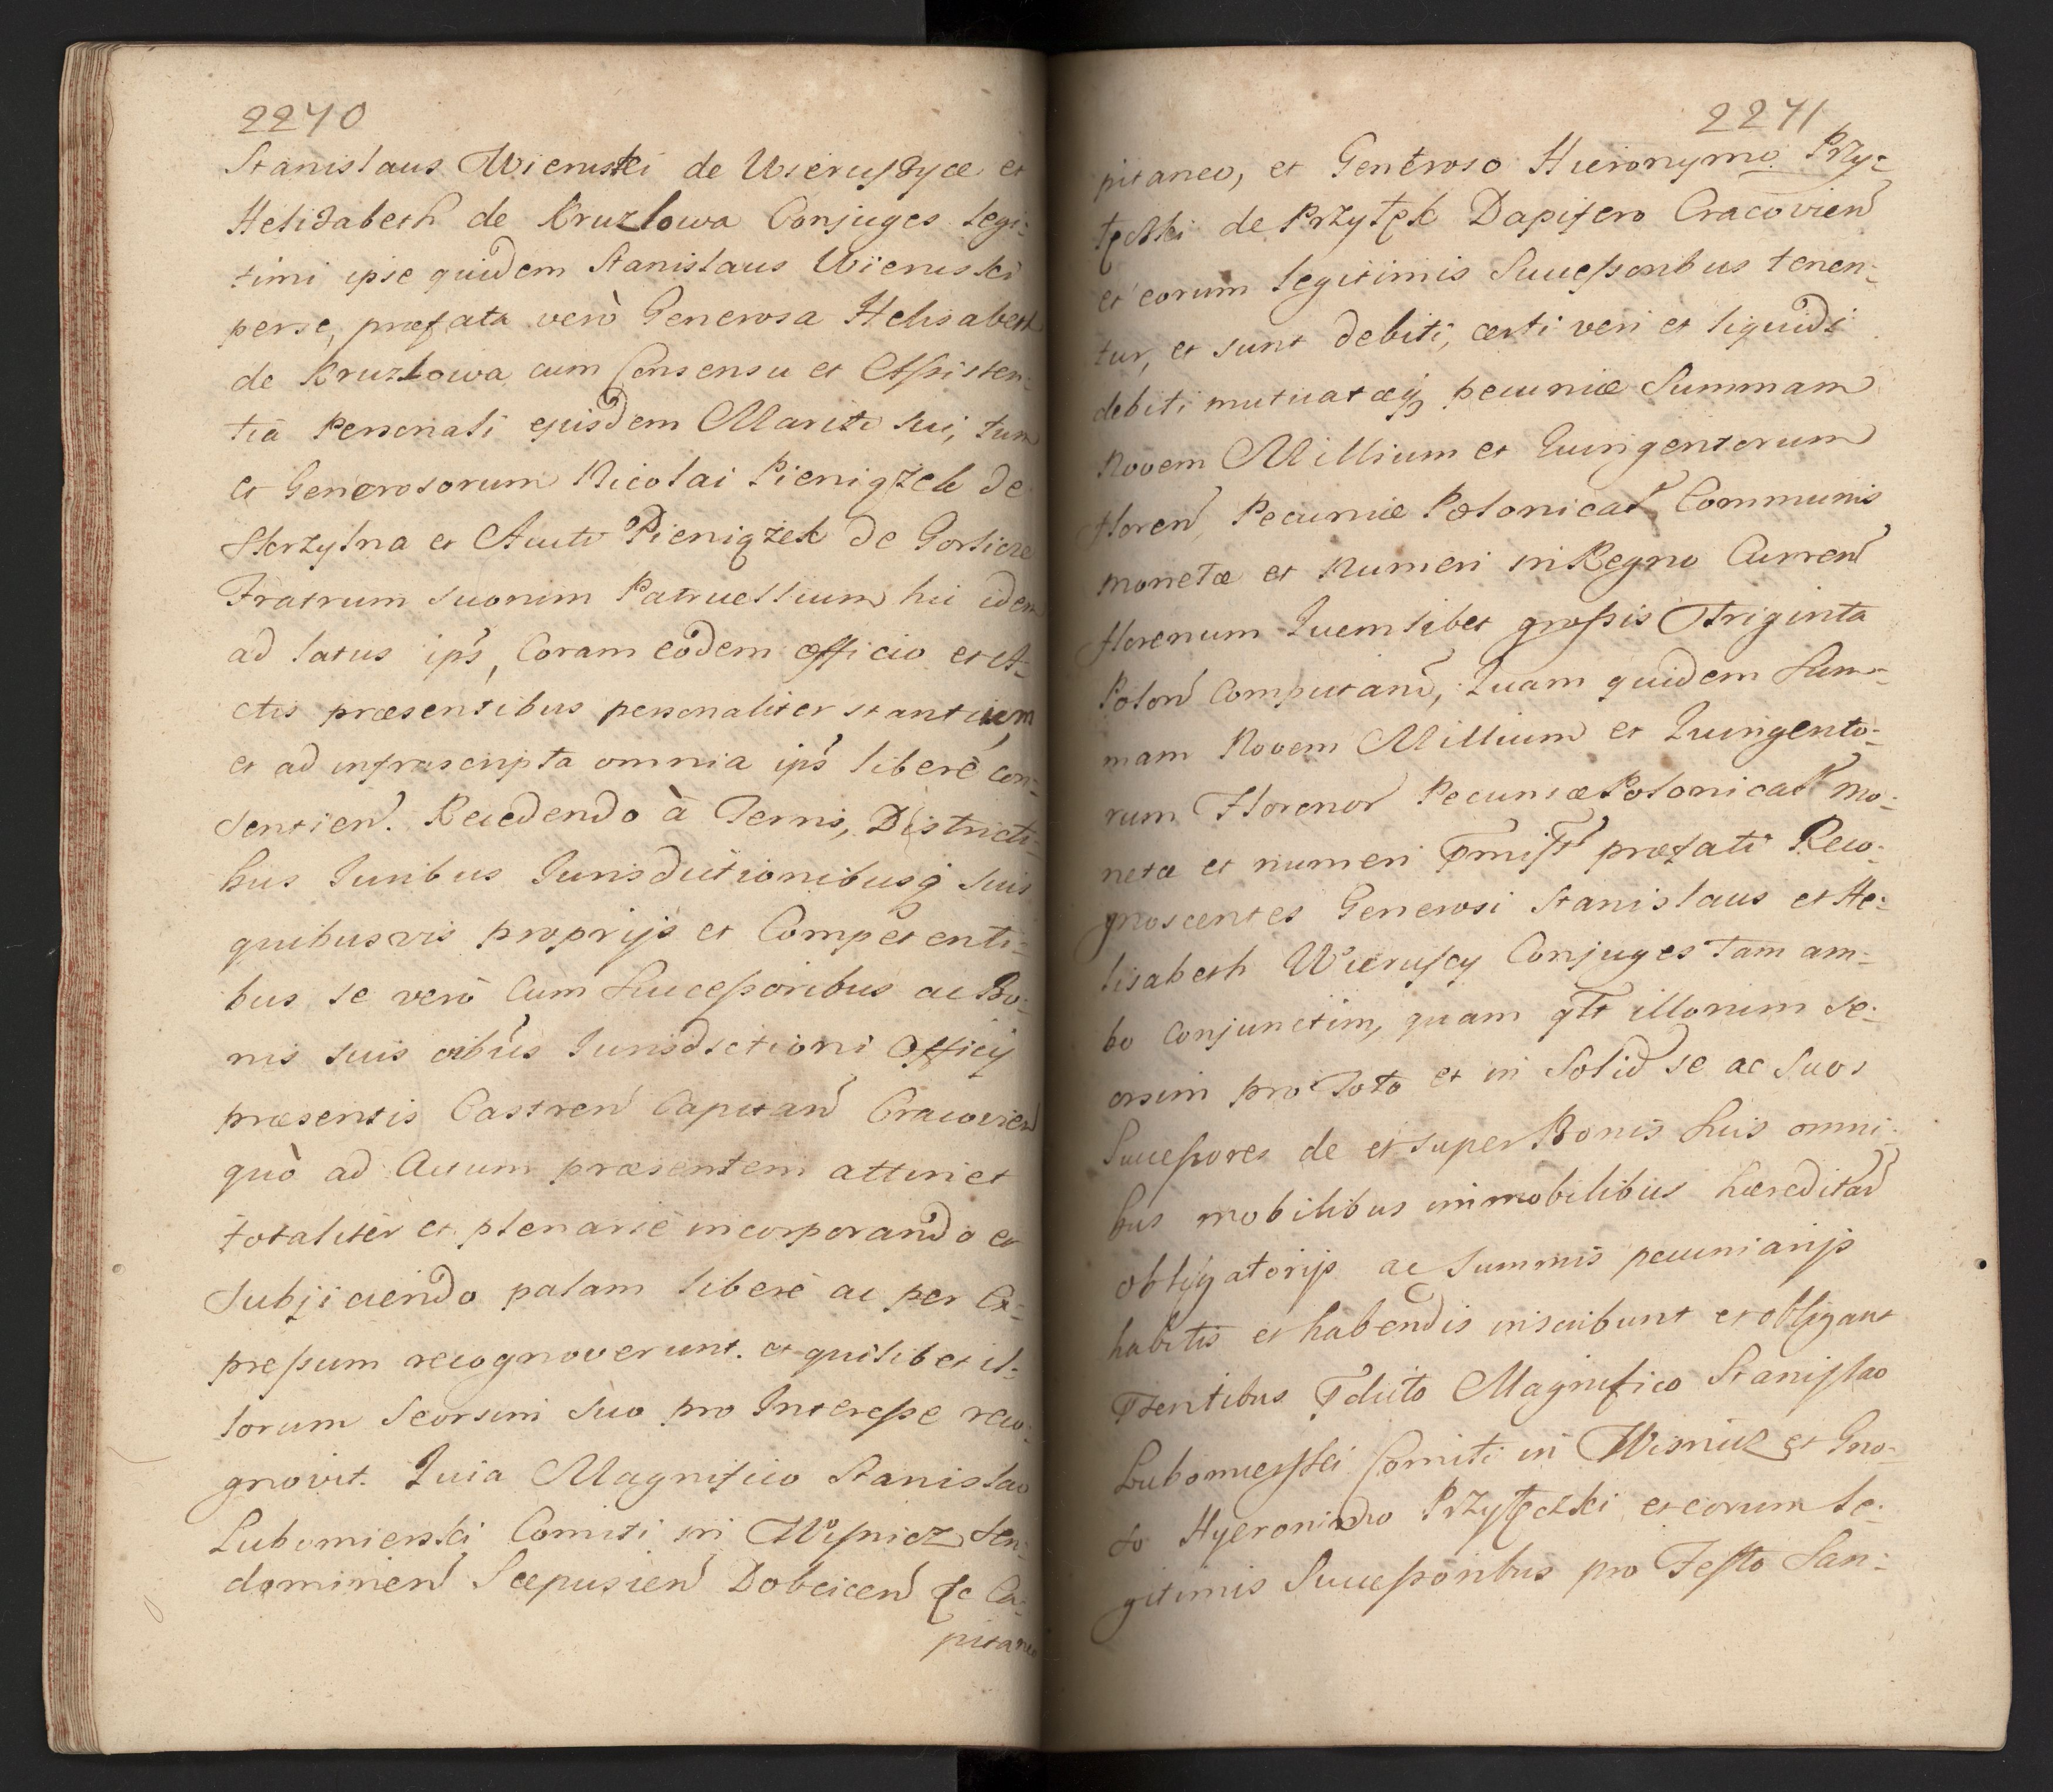 2240
Stanislaus Wieruski de Wieruszyce et
Helizabeth de Kruzlowa Conjuges legi-
timi ipse quidem Stanislaus Wieruski
per se, præfata verò Generosa Helisabeth
de Kruzlowa cum Consensu et Assisten-
tia Personali ejusdem Mariti sui, tum
et Generosorum Nicolai Pieniążek de
et Pieniążek de Gorlicze
Fratrum suorum Patruelium hic idem
ad latus ips, Coram eodem officio et A-
ctis præsentibus personaliter stantium
et ad infrascripta omnia ips liberè con-
sentien. Recedendo à Terris, Districti-
bus Juribus Jurisdictionibusq suis
quibusvis proprijs et Competenti-
bus se verò Cum Successoribus ac Bo-
nis suis oibus Jurisdictioni Officij
præsentis Castren Capitan Cracovien
quò ad Actum præsentem attinet
totaliter et plenariè incorporando et
Subjiciendo palam liberè ac per Ex-
pressum recognoverunt. et quilibet il-
lorum Seorsim suo pro Interesse reco-
gnovit. Quia Magnifico Stanislao
Lubomierski Comiti in Wisnicz Sen-
domirien Scepusien Dobcicen &c Ca-
pitaneo
2241
pitaneo, et Generoso Hieronymo Przy-
łęcki de Przyłęk Dapifero Cracovien
et eorum legitimis Successoribus tenen-
tur, et sunt debiti, certi veri et liquidi
debiti mutuatæq pecuniæ Summam
Novem Millium et Quingentorum
floren Pecuniæ Polonical Communis
monetæ et Numeri in Regno Curren
florenum Quemlibet grossis Triginta
Polon Computan, Quam quidem Sum-
mam Novem Millium et Quingento-
rum Florenor Pecuniæ Polonical mo-
netæ et numeri præfati Reco-
gnoscentes Generosi Stanislaus et He-
lisabeth Wieruscy Conjuges Tam am-
bo conjunctim, quam qlt illorum se-
orsim pro Toto et in Solid se ac Suos
Successores de et super Bonis Suis omni-
bus mobilibus immobilibus hæreditar
obligatorijs ac Summis pecuniarijs
habitis et habendis inscribunt et obligant
Magnifico Stanislao
Lubomierski Comiti in Wisnicz et Gno-
so Hyeronimo Przyłęcki et eorum le-
gitimis Successoribus pro Festo San-